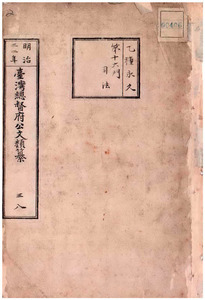 乙種永久
第十六門
司法
明治
臺灣總督府公文類纂
三八